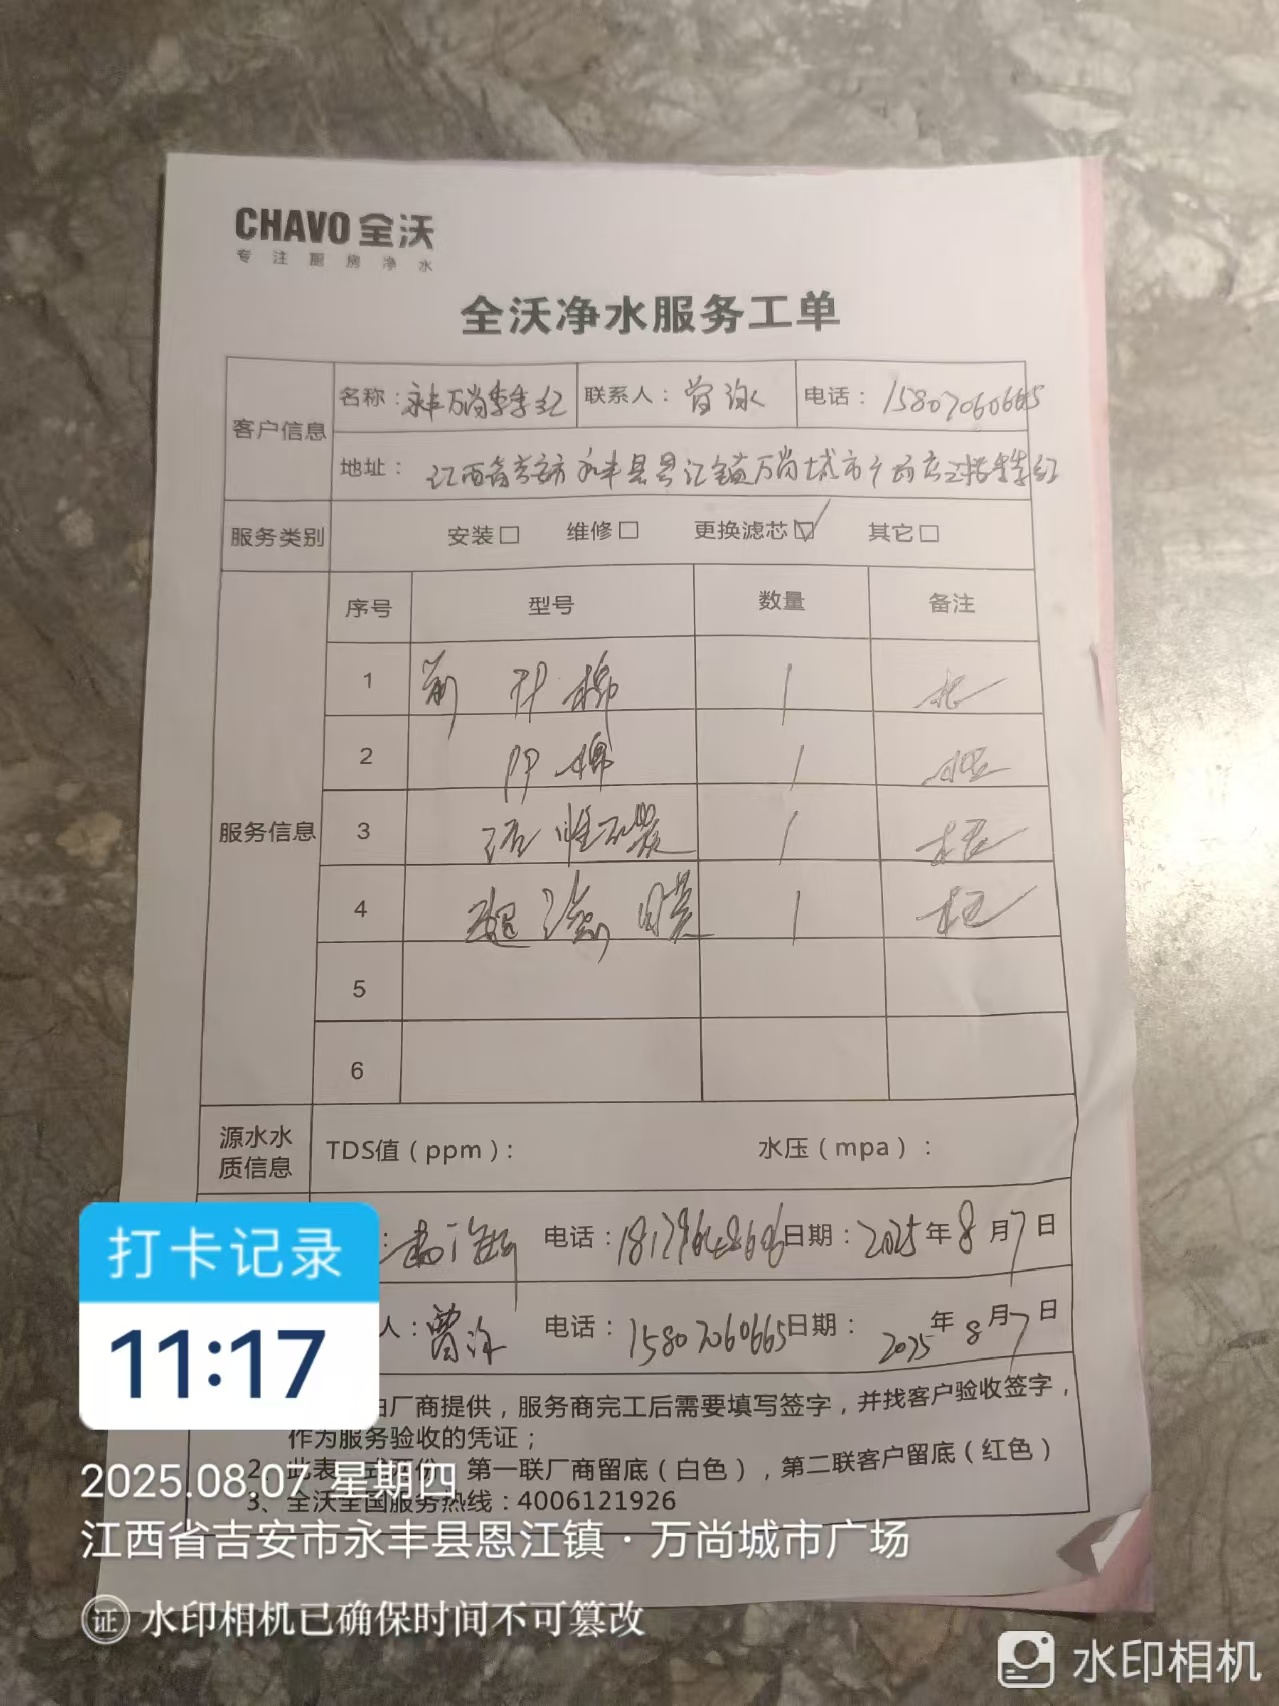 CHAVO 全沃
专注厨房净水
全沃净水服务工单
客户信息
名称：永丰万尚季季红 联系人：曾泳 电话：15807060665
地址：江西省吉安市永丰县恩江镇万尚城市广场 季季红
服务类别 安装□ 维修□ 更换滤芯☑ 其它□
服务信息
序号 型号 数量 备注
1 前 棉 1
2 PP棉 1
3 活性 1
4 超滤膜 1
5
6
源水水质信息 TDS值（ppm）： 水压（mpa）：
： 电话：18179648606 日期：2025年8月7日
人：曾泳 电话：15807060665 日期：2025年8月7日
由厂商提供，服务商完工后需要填写签字，并找客户验收签字，
作为服务验收的凭证；
2、此表一式两份，第一联厂商留底（白色），第二联客户留底（红色）
3、全沃全国服务热线：4006121926
打卡记录
11:17
2025.08.07 星期四
江西省吉安市永丰县恩江镇·万尚城市广场
证 水印相机已确保时间不可篡改
水印相机